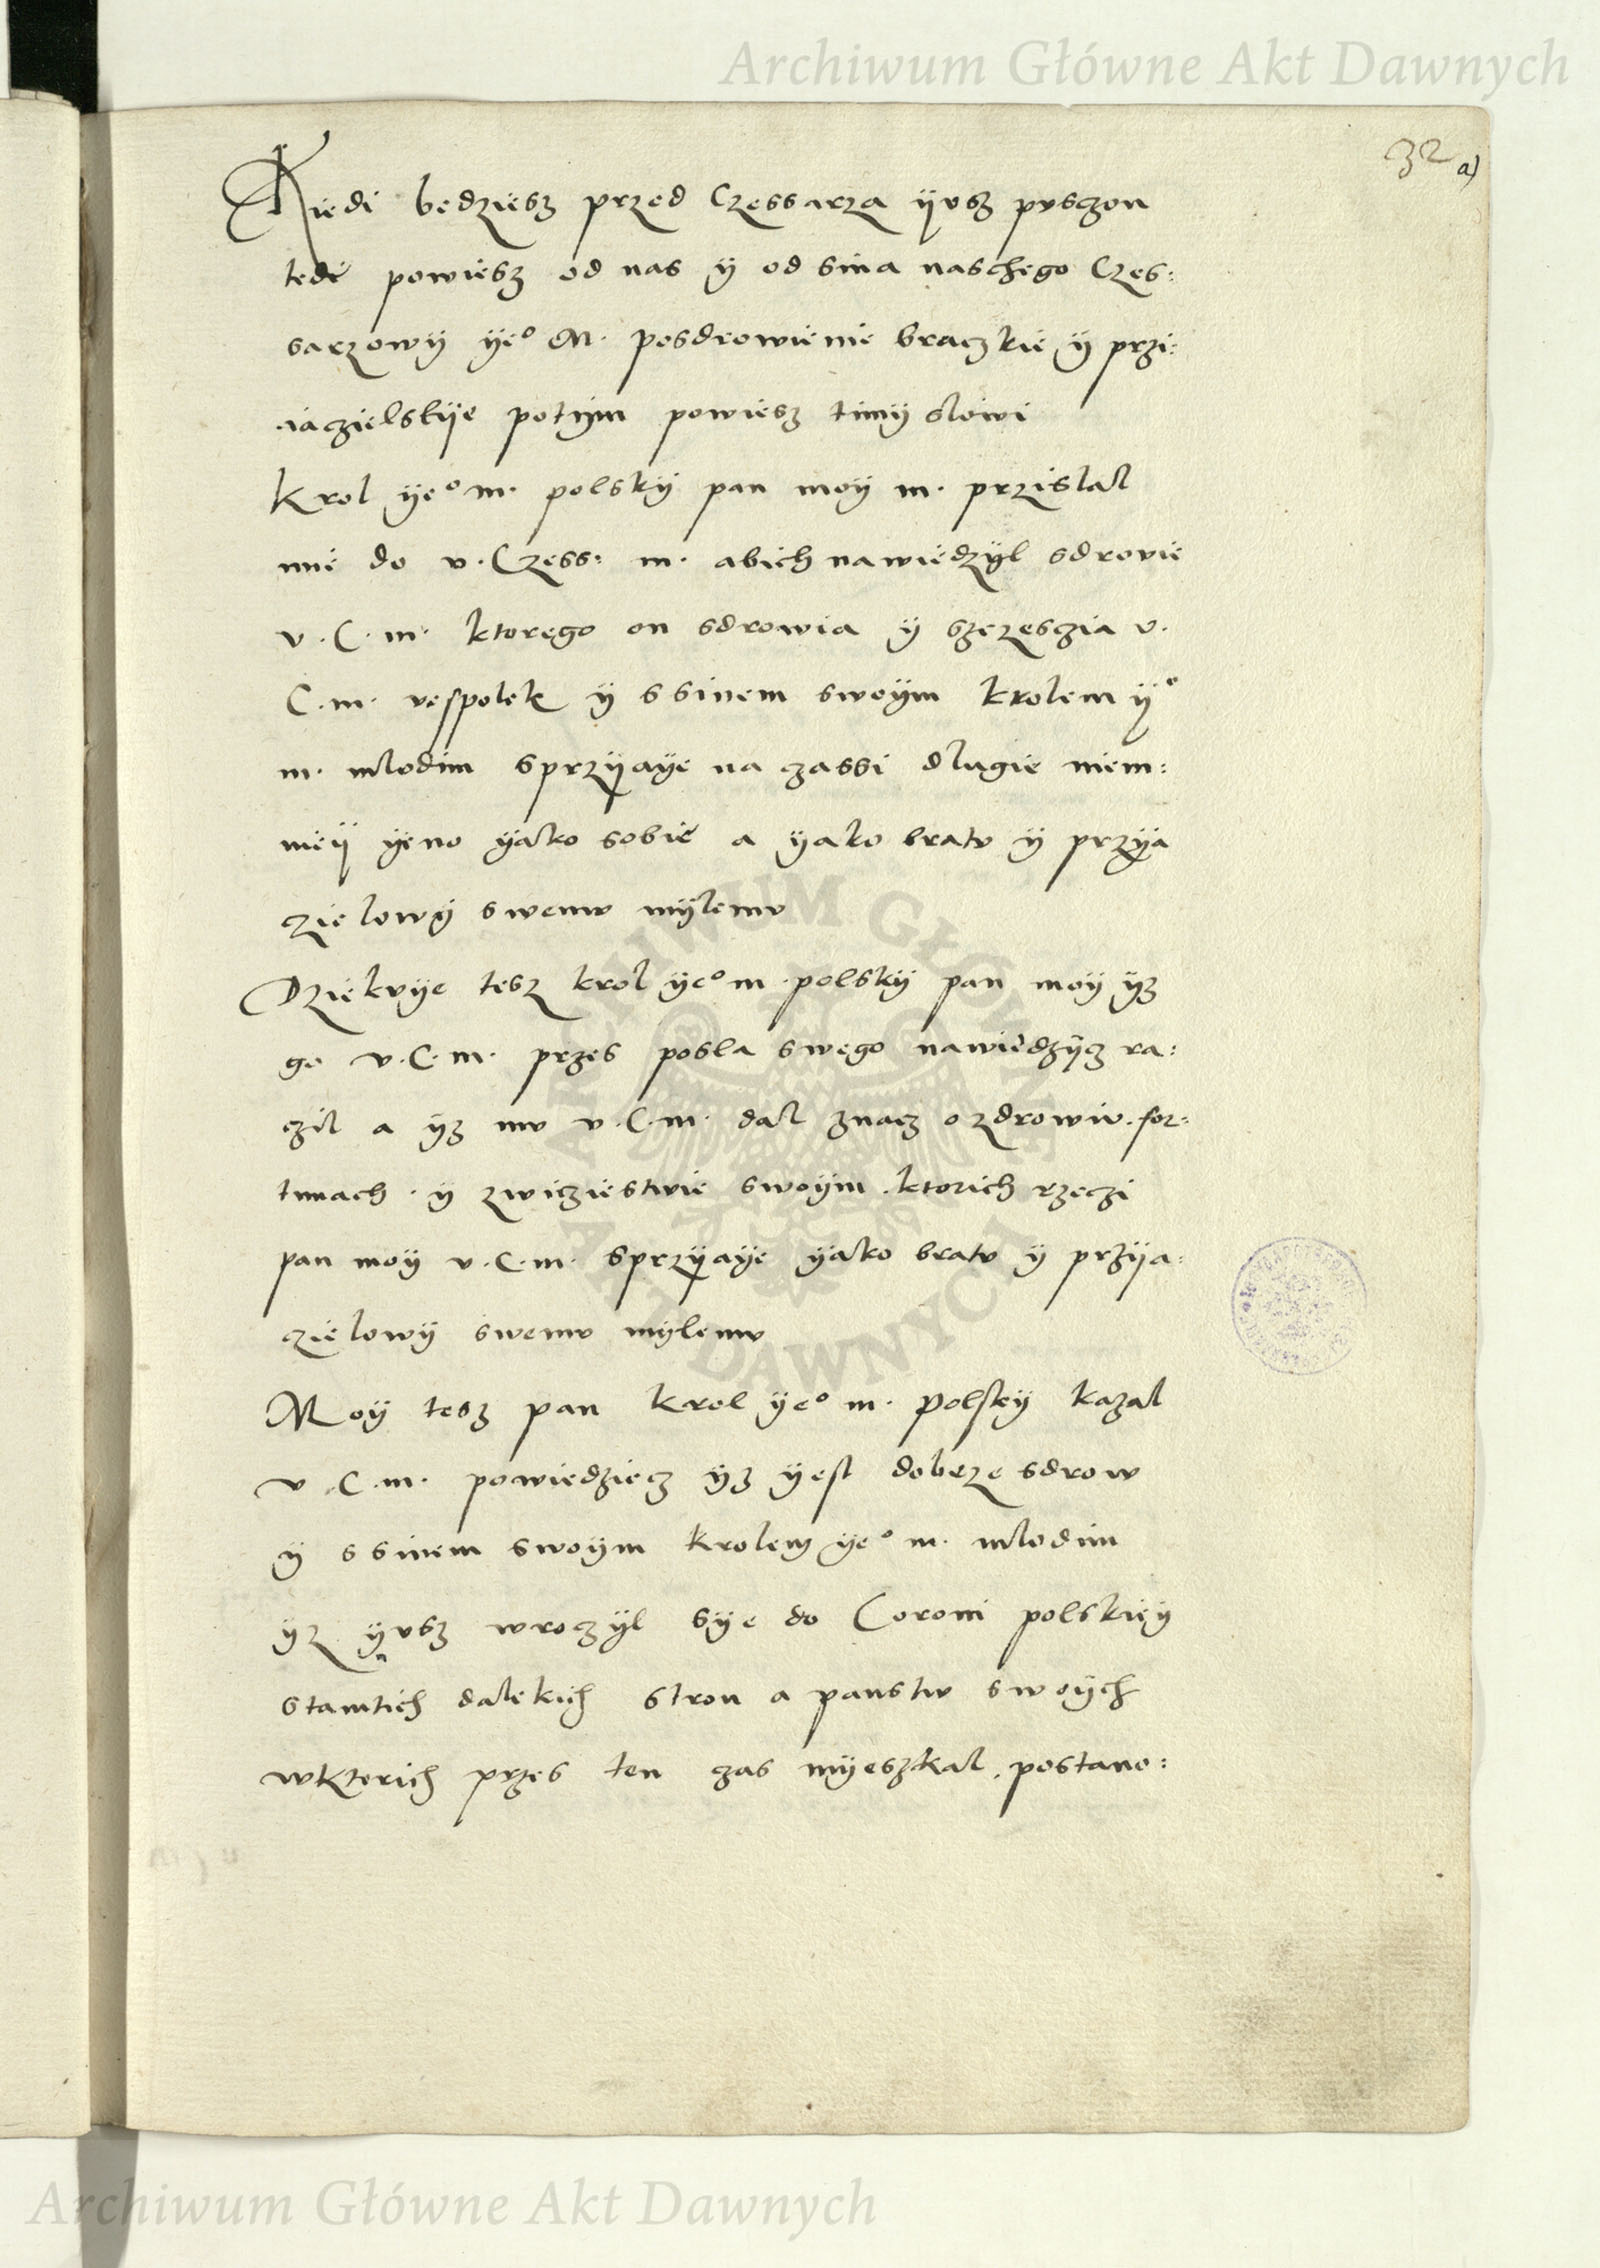 Archiwum Główne Akt Dawnych
32 a)
Kiedi bedziesz przed Czessarza ÿvsz pvsczon
tedi powiesz od nas ÿ od sina naschego Czes:
sarzowÿ ÿe° M. posdrowienie braczkie ÿ przi:
iaczielskÿe potÿm powiesz timÿ slowi
Krol ÿe° m. polskÿ pan moÿ m. przislal
mie do v. Czess: m. abich nawiedzÿl sdrovie
v. C. m. ktorego on sdrowia ÿ szczesczia v.
C. m. vespolek ÿ ssinem swoÿm krolem ÿ°
m. mlodim sprzÿaÿe na czassi dlugie niem:
nieÿ ÿeno ÿako sobie a ÿako bratv ÿ przÿia
czielowÿ swemv mÿlemv
Dziekvÿe tesz krol ÿe° m. polskÿ pan moÿ ÿz
go v. C. m. przes posla swego nawiedzÿcz ra:
czil a ÿz mv v. C. m. dal znacz o zdrowiv. for:
tunach. ÿ zwicziestwie swoÿm. ktorich rzeczi
pan moÿ v. C. m. sprzÿaÿe ÿako bratv ÿ przÿia:
czielowÿ swemv mÿlemv
Moÿ tesz pan Krol ÿe° m. Polskÿ kazal
v. C. m. powiedziecz ÿz ÿest dobrze sdrow
ÿ ssinem swoÿm Krolem ÿe° m. mlodim
ÿz ÿvsz wroczÿl sÿe do Coroni polskieÿ
stamtich dalekich stron a panstw swoÿch
wktorich przes ten czas mÿeszkal. postano:
ARCHIWUM GŁÓWNE AKT DAWNYCH
Archiwum Główne Akt Dawnych